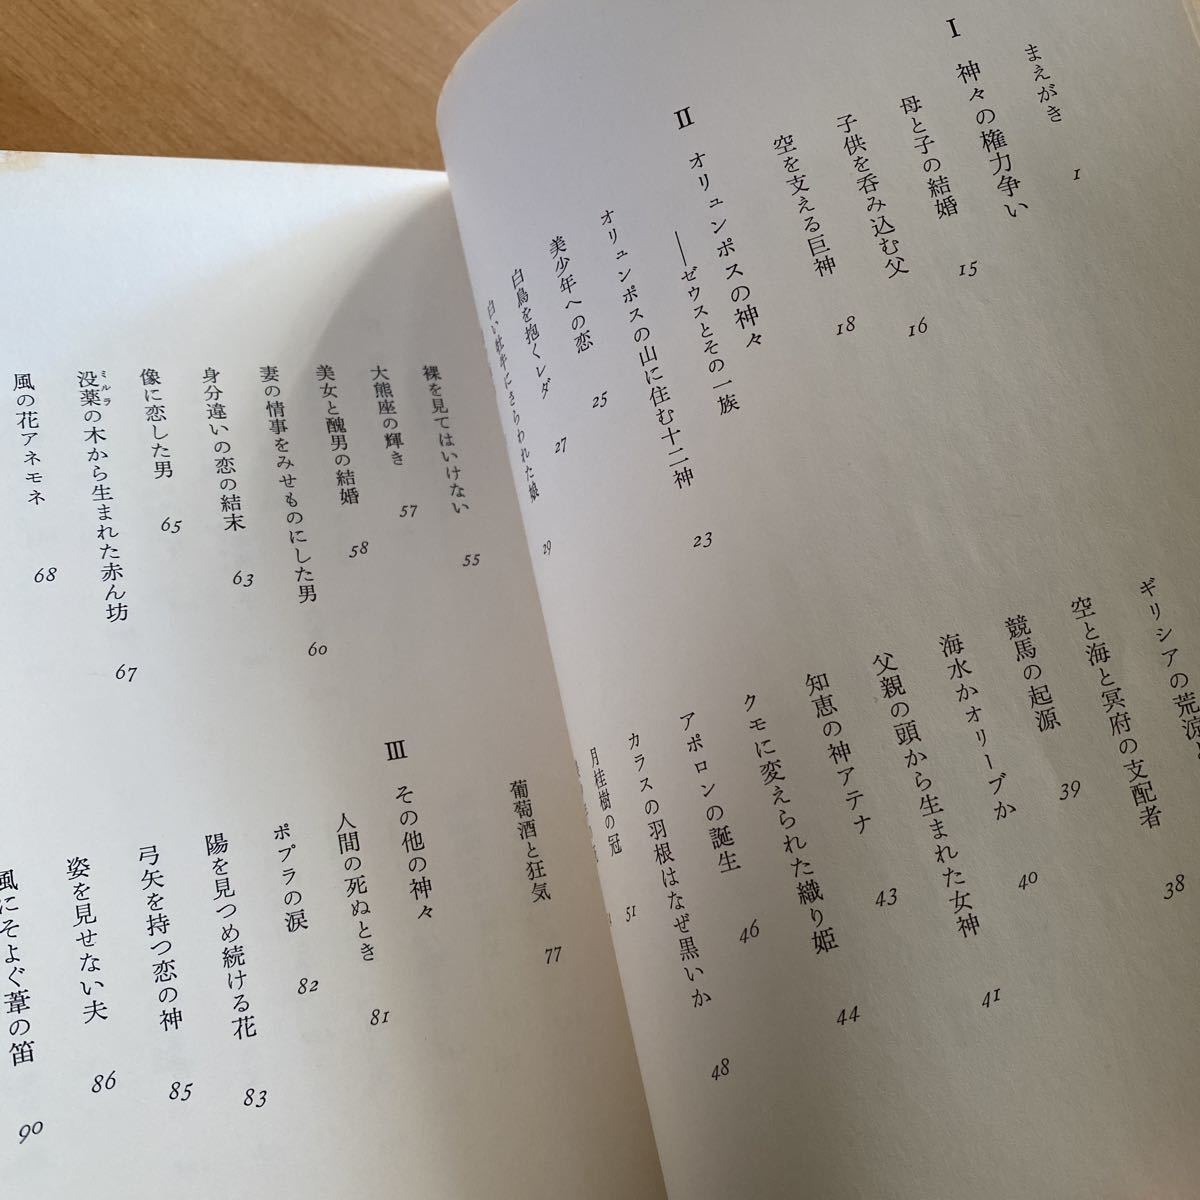 まえがき 1
I 神々の権力争い
母と子の結婚 15
子供を呑み込む父 16
空を支える巨神 18
II オリュンポスの神々
——ゼウスとその一族
オリュンポスの山に住む十二神 23
美少年への恋 25
白鳥を抱くレダ 27
白い牡牛にさらわれた娘 29
ギリシアの荒涼 38
空と海と冥府の支配者
競馬の起源 39
海水かオリーブか 40
父親の頭から生まれた女神 41
知恵の神アテナ 43
クモに変えられた織り姫 44
アポロンの誕生 46
カラスの羽根はなぜ黒いか 48
月桂樹の冠 51
裸を見てはいけない 55
大熊座の輝き 57
美女と醜男の結婚 58
妻の情事をみせものにした男 60
身分違いの恋の結末 63
像に恋した男 65
没薬の木から生まれた赤ん坊 67
ミルラ
風の花アネモネ 68
葡萄酒と狂気 77
III その他の神々
人間の死ぬとき 81
ポプラの涙 82
陽を見つめ続ける花 83
弓矢を持つ恋の神 85
姿を見せない夫 86
風にそよぐ葦の笛 90